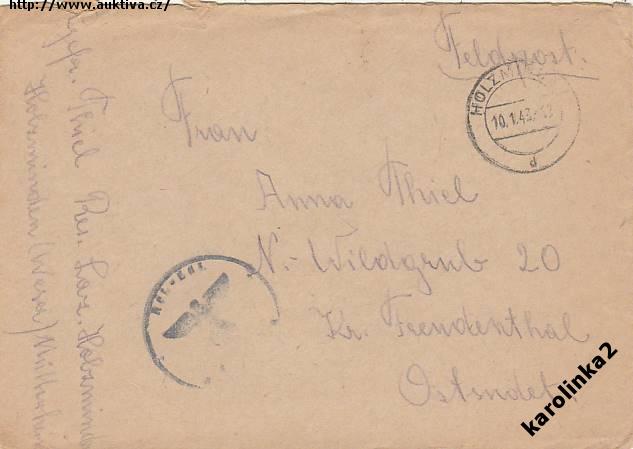 http://www.auktiva.cz/
Feldpost.
HOLZMI
10.1.43
d
Frau
Anna Thiel
N.-Wildgrub 20
Kr. Freudenthal
Ostsudet.
Thiel Res. Laz. Holzminden
Holzminden (Weser)
karolinka2